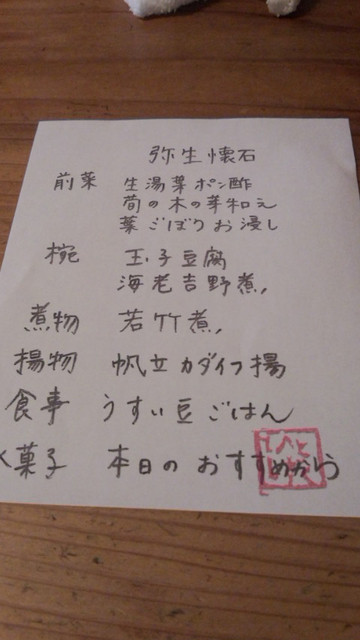 弥生懐石
前菜 生湯葉ポン酢
筍の木の芽和え
葉ごぼうお浸し
椀 玉子豆腐
海老吉野煮
煮物 若竹煮
揚物 帆立カダイフ揚
食事 うすい豆ごはん
水菓子 本日のおすすめから